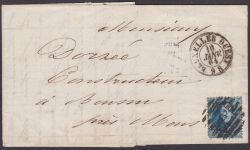 Monsieur
Dorzée
Constructeur
à Boussu
près Mons
BRUXELLES (OUEST)